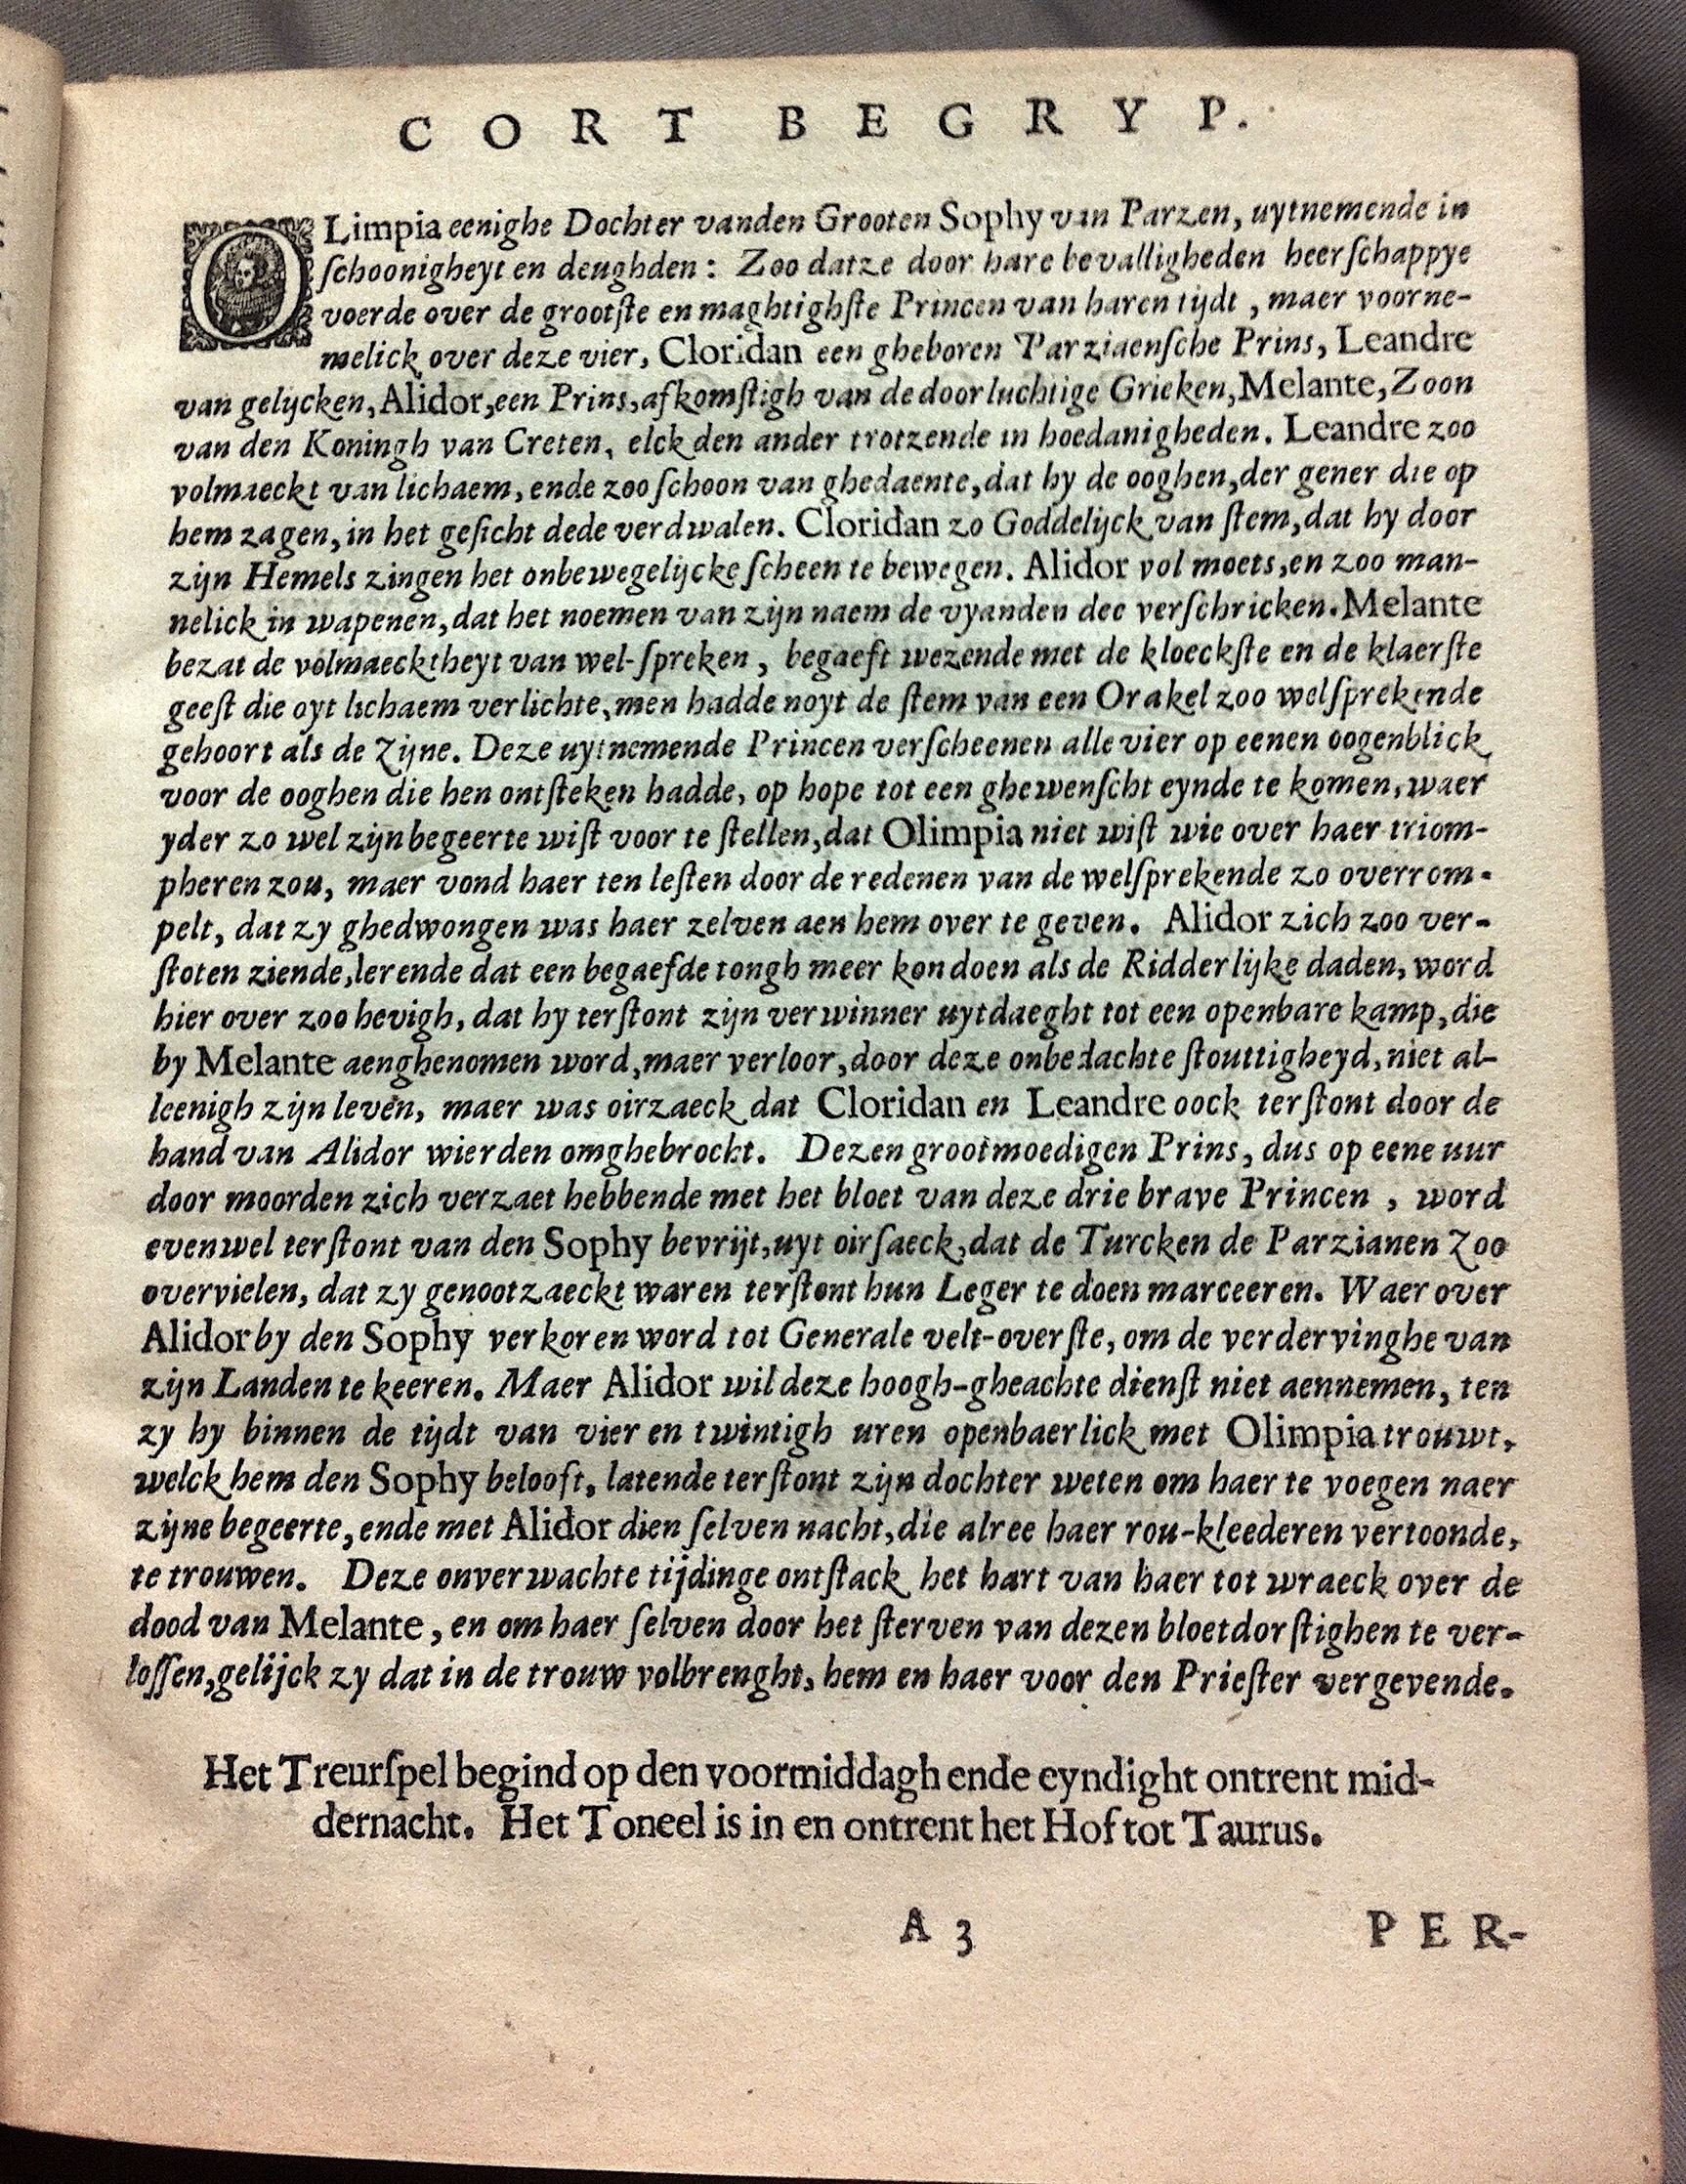 CORT BEGRYP.
OLimpia eenighe Dochter vanden Grooten Sophy van Parzen, uytnemende in
ſchoonigheyt en deughden: Zoo datze door hare bevalligheden heerſchappye
voerde over de grootſte en maghtighſte Princen van haren tijdt, maer voorne-
melick over deze vier, Cloridan een gheboren Parziaenſche Prins, Leandre
van gelijcken, Alidor, een Prins, afkomſtigh van de doorluchtige Grieken, Melante, Zoon
van den Koningh van Creten, elck den ander trotzende in hoedanigheden. Leandre zoo
volmaeckt van lichaem, ende zoo ſchoon van ghedaente, dat hy de ooghen, der gener die op
hem zagen, in het geſicht dede verdwalen. Cloridan zo Goddelijck van ſtem, dat hy door
zijn Hemels zingen het onbewegelijcke ſcheen te bewegen. Alidor vol moets, en zoo man-
nelick in wapenen, dat het noemen van zijn naem de vyanden dee verſchricken. Melante
bezat de volmaecktheyt van wel-ſpreken, begaeft wezende met de kloeckſte en de klaerſte
geeſt die oyt lichaem verlichte, men hadde noyt de ſtem van een Orakel zoo welſprekende
gehoort als de zijne. Deze uytnemende Princen verſcheenen alle vier op eenen oogenblick
voor de ooghen die hen ontſteken hadde, op hope tot een ghewenſcht eynde te komen, waer
yder zo wel zijn begeerte wiſt voor te ſtellen, dat Olimpia niet wiſt wie over haer triom-
pheren zou, maer vond haer ten leſten door de redenen van de welſprekende zo overrom-
pelt, dat zy ghedwongen was haer zelven aen hem over te geven. Alidor zich zoo ver-
ſtoten ziende, lerende dat een begaefde tongh meer kon doen als de Ridderlijke daden, word
hier over zoo hevigh, dat hy terſtont zijn verwinner uytdaeght tot een openbare kamp, die
by Melante aenghenomen word, maer verloor, door deze onbedachte ſtouttigheyd, niet al-
leenigh zijn leven, maer was oirzaeck dat Cloridan en Leandre oock terſtont door de
hand van Alidor wierden omghebrocht. Dezen grootmoedigen Prins, dus op eene uur
door moorden zich verzaet hebbende met het bloet van deze drie brave Princen, word
evenwel terſtont van den Sophy bevrijt, uyt oirſaeck, dat de Turcken de Parzianen zoo
overvielen, dat zy genootzaeckt waren terſtont hun Leger te doen marceeren. Waer over
Alidor by den Sophy verkoren word tot Generale velt-overſte, om de verdervinghe van
zijn Landen te keeren. Maer Alidor wil deze hoogh-gheachte dienſt niet aennemen, ten
zy hy binnen de tijdt van vier en twintigh uren openbaerlick met Olimpia trouwt,
welck hem den Sophy belooft, latende terſtont zijn dochter weten om haer te voegen naer
zijne begeerte, ende met Alidor dien ſelven nacht, die alree haer rou-kleederen vertoonde,
te trouwen. Deze onverwachte tijdinge ontſtack het hart van haer tot wraeck over de
dood van Melante, en om haer ſelven door het ſterven van dezen bloetdorſtighen te ver-
loſſen, gelijck zy dat in de trouw volbrenght, hem en haer voor den Prieſter vergevende.
Het Treurſpel begind op den voormiddagh ende eyndight ontrent mid-
dernacht. Het Toneel is in en ontrent het Hof tot Taurus.
A 3
PER-